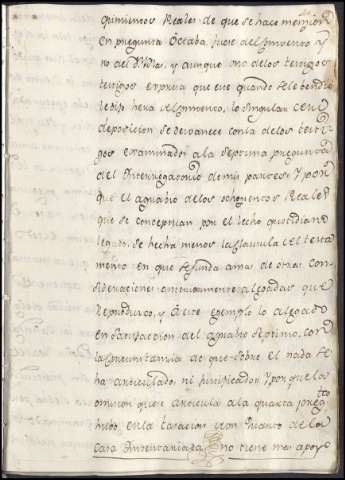 quinientos Reales de que se hace mencion
en pregunta Octaba, fuese del Imbento, y
no del Dr. Dias, y aunque uno de los testigos
testigos expresa que ese quando se le bendio
le dijo hera del Imbento, lo singular de su
deposicion se devanece con la de los testi-
gos examinados a la septima pregunta
del Interrogatorio de mi parte: Y por
que el agravio de los ochocientos Reales
que se conceptuan por el lecho quotidiano
legado, se hecha menos la clausula del testa
mento en que se funda amas de otras con-
sideraciones anteriormente alegadas que
Reproduzco, y a este exemplo lo alegado
en satisfaccion del agravio septimo, con
la circunstancia de que sobre el nada se
ha articulado, ni justificado: Y por que la
omision que se articula a la quarta preg.ta
hubo, en la tasacion con marco de los
Casa Inventariada, no tiene mas apoyo